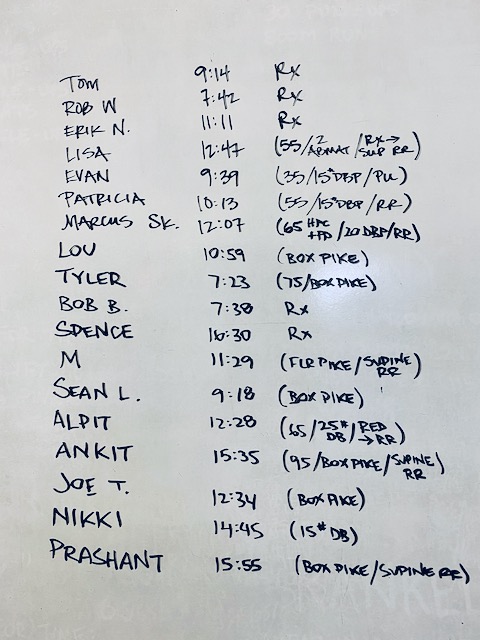 TOM 9:14 Rx
ROB W 7:42 Rx
ERIK N. 11:11 Rx
LISA 12:47 (55/2 ABMAT/RX→ SUP RR)
EVAN 9:39 (35/15# DBP/PU)
PATRICIA 10:13 (55/15# DBP/RR)
MARCUS SK. 12:07 (65 HPC +FD/20 DBP/RR)
LOU 10:59 (BOX PIKE)
TYLER 7:23 (75/BOX PIKE)
BOB B. 7:38 Rx
SPENCE 16:30 Rx
M 11:29 (FLR PIKE/SUPINE RR)
SEAN L. 9:18 (BOX PIKE)
ALPIT 12:28 (65/25# DB/RED →RR)
ANKIT 15:35 (95/BOX PIKE/SUPINE RR)
JOE T. 12:34 (BOX PIKE)
NIKKI 14:45 (15# DB)
PRASHANT 15:55 (BOX PIKE/SUPINE RR)